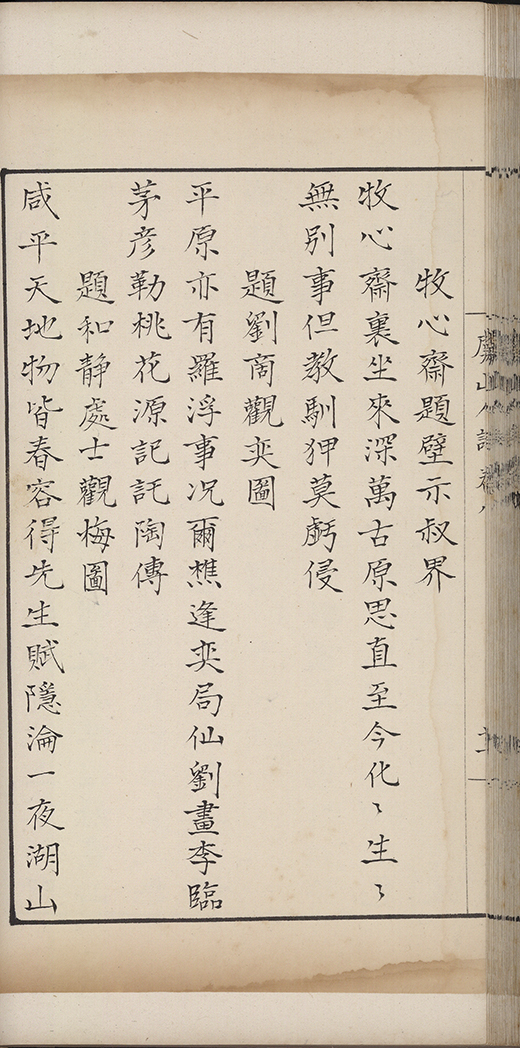 牧心齋題壁示叔界
牧心齋裏坐來深萬古原思直至今化〻生〻
無別事但教馴狎莫虧侵
題劉商觀奕圖
平原亦有羅浮事况爾樵逢奕局仙劉畫李臨
茅彥勒桃花源記託陶傳
題和靜處士觀梅圖
咸平天地物皆春容得先生賦隱淪一夜湖山